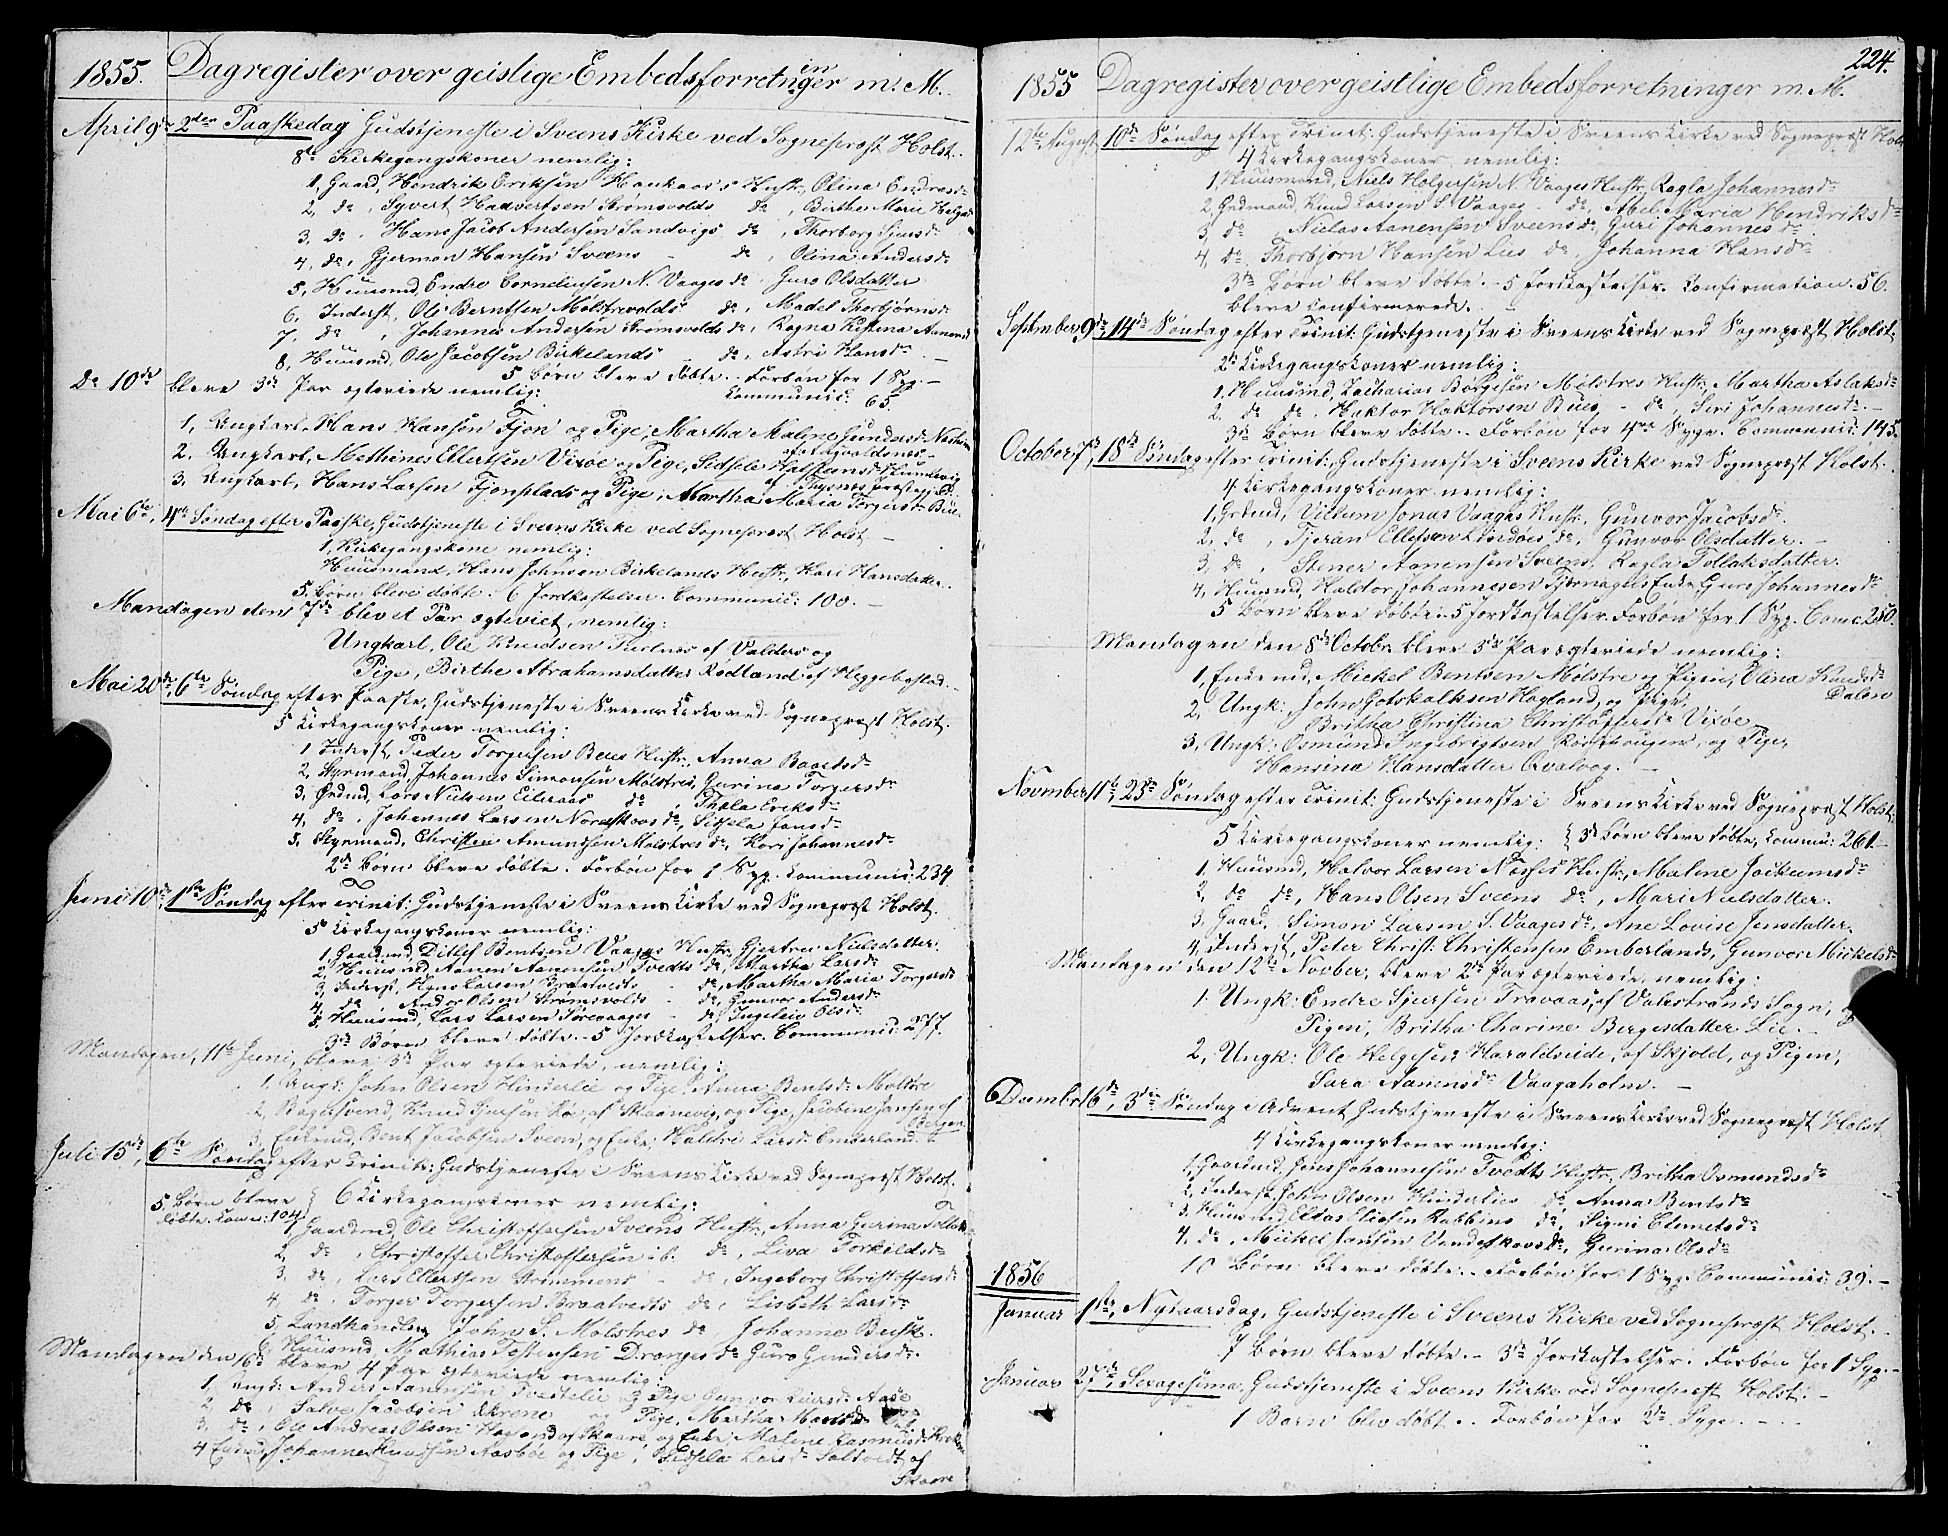 1855. Dagregister over geistlige Embedsforretninger m: M.
April 9de 2den Paaskedag Gudstjeneste i Sveens Kirke ved Sognepræst Holst.
8te Kirkegangskoner nemlig:
1, Gaard, Hendrik Eriksen Haukaas's Hustr, Olina Endresdr
2, do, Syvert Haavertsen Strømsvolds do, Birthe Marie Helgesdr
3, do, Hans Jacob Andersen Sandvigs do, Thorborg Sjursdr
4, do, Gjerman Hansen Sveens do, Olina Andersdr
5, Huusmd, Endre Corneliusen N. Vaages do, Guro Olsdatter
6, Inderst, Ole Berntsen Mølstrevolds do, Madel Thorbjørnsdr
7, do, Johannes Andersen Strømsvolds do, Ragna Kistina Amunds
8, Huusmd, Ole Jacobsen Birkelands do, Astri Hansdr. –
5 Børn bleve døbte. Forbøn for 1 Syg. –
Do 10de bleve 3de Par ægteviede nemlig: Communic: 65.
1, Ungkarl, Hans Hansen Fjon og Pige, Martha Malene Gundersdr
af Augvaldsnes –
2. Ungkarl, Mathines Ellertsen Vixøe og Pige, Sidsele Halsteensdr
af Thysnes Præstegjeld
3. Ungkarl, Hans Larsen Fjonplads og Pige, Martha Maria Torgersdr Bue.
Mai 6te, 4de Søndag efter Paaske, Gudstjeneste i Sveens Kirke ved Sognepræst Holst. –
1, Kirkegangskone nemlig:
Huusmand, Hans Johnsen Birkelands Hustr, Kari Hansdatter.
5. Børn bleve døbte. 6 Jordkastelser. Communic: 100. –
Mandagen den 7de blev et Par ægteviet, nemlig:
Ungkarl, Ole Knudsen af Valders og
Pige, Birthe Abrahamsdatter Rødland af
Mai 20de, 6te Søndag efter Paaske, Gudstjeneste i Sveens Kirke ved Sognepræst Holst.
5 Kirkegangskoner nemlig:
1, Inderst, Peder Torgersen Bues Hustr, Anna Baardsdr
2, Styrmand, Johannes Simonsen Mølstres, Gurina Torgersdr
3, Grdmd, Lars Nielsen Eileraas do, Thala Eriksdr
4, do, Johannes Larsen Nordskovs do, Sidsela Jonsdr
5, Styrmand, Christen Amundsen Mølstres do, Kari Johannesdr
2de Børn bleve døbte. Forbøn for 1 Syg. Communic: 234
Juni 10de, 1ste Søndag efter Trinit: Gudstjeneste i Sveens Kirke ved Sognepræst Holst.
5 Kirkegangskoner nemlig:
1, Gaardmd, Ditlef Bentsen Vaages Hustr, Gjertru Nielsdatter.
2, Huusmd, Aanen Aanensen Tvedts do, Martha Larsdr
3, Inderst, Hans Larsen Braatvedts do, Martha Maria Torgersdr
4, do, Andor Olsen Strømsvolds do, Gunvor Andersdr
5, Huusmd, Lars Larsen Sørevaages do, Ingeleiv Olsdr
3de Børn bleve døbte. – 5 Jordkastelser. Communic: 277.
Mandagen, 11te Juni, bleve 3de Par ægteviede, nemlig:
1, Ungk: John Olsen Hinderlie og Pige, Anna Bentsdr Mølstre
2, Bagersvend, Knud af Skaanevig, og Pige, Jacobine Jansen af
Bergen
3, Enkemd, Bent Jacobsen Sveen, og Enke, Haldri Larsdr Emberland.
Juli 15de, 6te Søndag efter Trinit: Gudstjeneste i Sveens Kirke ved Sognepræst Holst.
5 Børn bleve døbte. Comm: 104 } 6 Kirkegangskoner nemlig:
1, Gaardmd, Ole Christoffersen Sveens Hustr, Anna Gurina
2, do, Christoffer Christoffersen ib. do, Liva Torkildsdr
3, do, Lars Ellertsen do, Ingeborg Christoffersdr
4, do, Torger Torgersen Braatvedts do, Lisbeth Larsdr
5, Landhandler John S. Mølstres do, Johanne Busk.
6, Huusmd, Mathias Tostensen Dranges do Guro Gundersdr.
Mandagen den 16de bleve 4 Par ægteviede nemlig:
1, Ungk: Anders Aanensen Tvedtelie og Pige Gunvor
2, do, Salve Jacobsen og Pige, Martha
3, do, Ole Andreas Olsen Hagland af Skaare og Enke Malene Rasmusdr
4 Enkmd Johannes Knudsen Aasbøe og Pige, Sidsela Larsdr Saltvedt af
Skaare
224.
1855 Dagregister over geistlige Embedsforretninger m. M.
12te August, 10de Søndag efter Trinit: Gudstjeneste i Sveens Kirke ved Sognepræst Holst
4 Kirkegangskoner nemlig:
1, Huusmand, Niels Holgersen N. Vaages Hustr, Ragla Johannesdr
2, Grdmand, Knud Larsen S. Vaages – do, Abel Maria Hendriksdr
3, do, Nielas Aanensen Sveens do, Guri Johannesdr
4, do, Thorbjørn Hansen Lies do, Johanna Hansdr
3de Børn bleve døbte. – 5 Jordkastelser. Confirmation. 56.
bleve confirmerede. –
September 9de, 14de Søndag efter Trinit: Gudstjeneste i Sveens Kirke ved Sognepræst Holst.
2de Kirkegangskoner nemlig:
1, Huusmd, Zacharias Børgesen Mølstres Hustr, Martha Aslaksdr
2, do do, Haktor Haktorsen Bues – do, Siri Johannesdr. –
3de Børn bleve døbte. – Forbøn for 4re Syge. Communic: 145.
October 7de, 18de Søndag efter Trinit: Gudstjeneste i Sveens Kirke ved Sognepræst Holst.
4 Kirkegangskoner nemlig:
1, Grdmd, Villum Jonas Vaages Hustr, Gunvor Jacobsdr.
2, do, Tjeran Ellefsen Lindøes do, Gunvor Olsdatter. –
3, do, Stener Aanensen Sveens, Ragla Tollaksdatter.
4, Huusmd, Haldor Johannesen Tjernagels Enke, Guri Johannesdr
5 Børn bleve døbte. – 5 Jordkastelser. Forbøn for 1 Syg. Com: 250.
Mandagen den 8de Octobr bleve 3de Par ægteviede nemlig:
1, Enkemd, Mickel Bentsen Mølstre og Pigen, Olina Knudsdr
Dalen
2, Ungk: John Gotskalksen Hagland, og Pige,
Britha Christina Christophersdr Vixøe
3, Ungk: Osmund Ingebrigtsen og Pige,
Hansina Hansdatter Qvalvog. –
November 11te, 23de Søndag efter Trinit: Gudstjeneste i Sveens Kirke ved Sognepræst Holst.
5 Kirkegangskoner nemlig: { 3de Børn bleve døbte, Commu: 261. –
1, Huusmd, Halvor Larsen Hustr, Malene Jockumsdr
2, do do, Hans Olsen Sveens do, Mari Nielsdatter.
3, Gaard, Simon Larsen S. Vaages do, Ane Lovise Jensdatter.
4, Inderst, Peter Christ: Christensen Emberlands, Gunvor Mickelsdr
Mandagen den 12te Novber, bleve 2de Par ægteviede, nemlig:
1. Ungk: Endre Sjursen Travaas, af Valestrands Sogn, og
Pigen, Britha Charine Børgesdatter Lie. –
2, Ungk: Ole Helgesen Haraldseide, af Skjold, og Pigen,
Sara Aanensdr Vaagaholm. –
Decembr 16de, 3die Søndag i Advent Gudstjeneste i Sveens Kirke ved Sognepræst Holst
4 Kirkegangskoner nemlig:
1, Gaardmd, Jens Johannesen Tvedts Hustr, Britha Osmundsdr
2, Inderst, John Olsen Hinderlies do Anna Bentsdr
3, Huusmd, Elias Eliesen Rabbens do, Signi Clemetsdr
4, do, Mickel Jansen do, Gurina Olsdr
10 Børn bleve døbte. – Forbøn for 1 Syg. Communic: 39. –
1856
Januar 1ste, Nytaarsdag, Gudstjeneste i Sveens Kirke ved Sognepræst Holst.
7 Børn bleve døbte. – 3de Jordkastelser. Forbøn for 1 Syg. –
Januar 27de, Sexagesima, Gudstjeneste i Sveens Kirke ved Sognepræst Holst. –
1 Barn blev døbt. . Forbøn for 2de Syge. – –